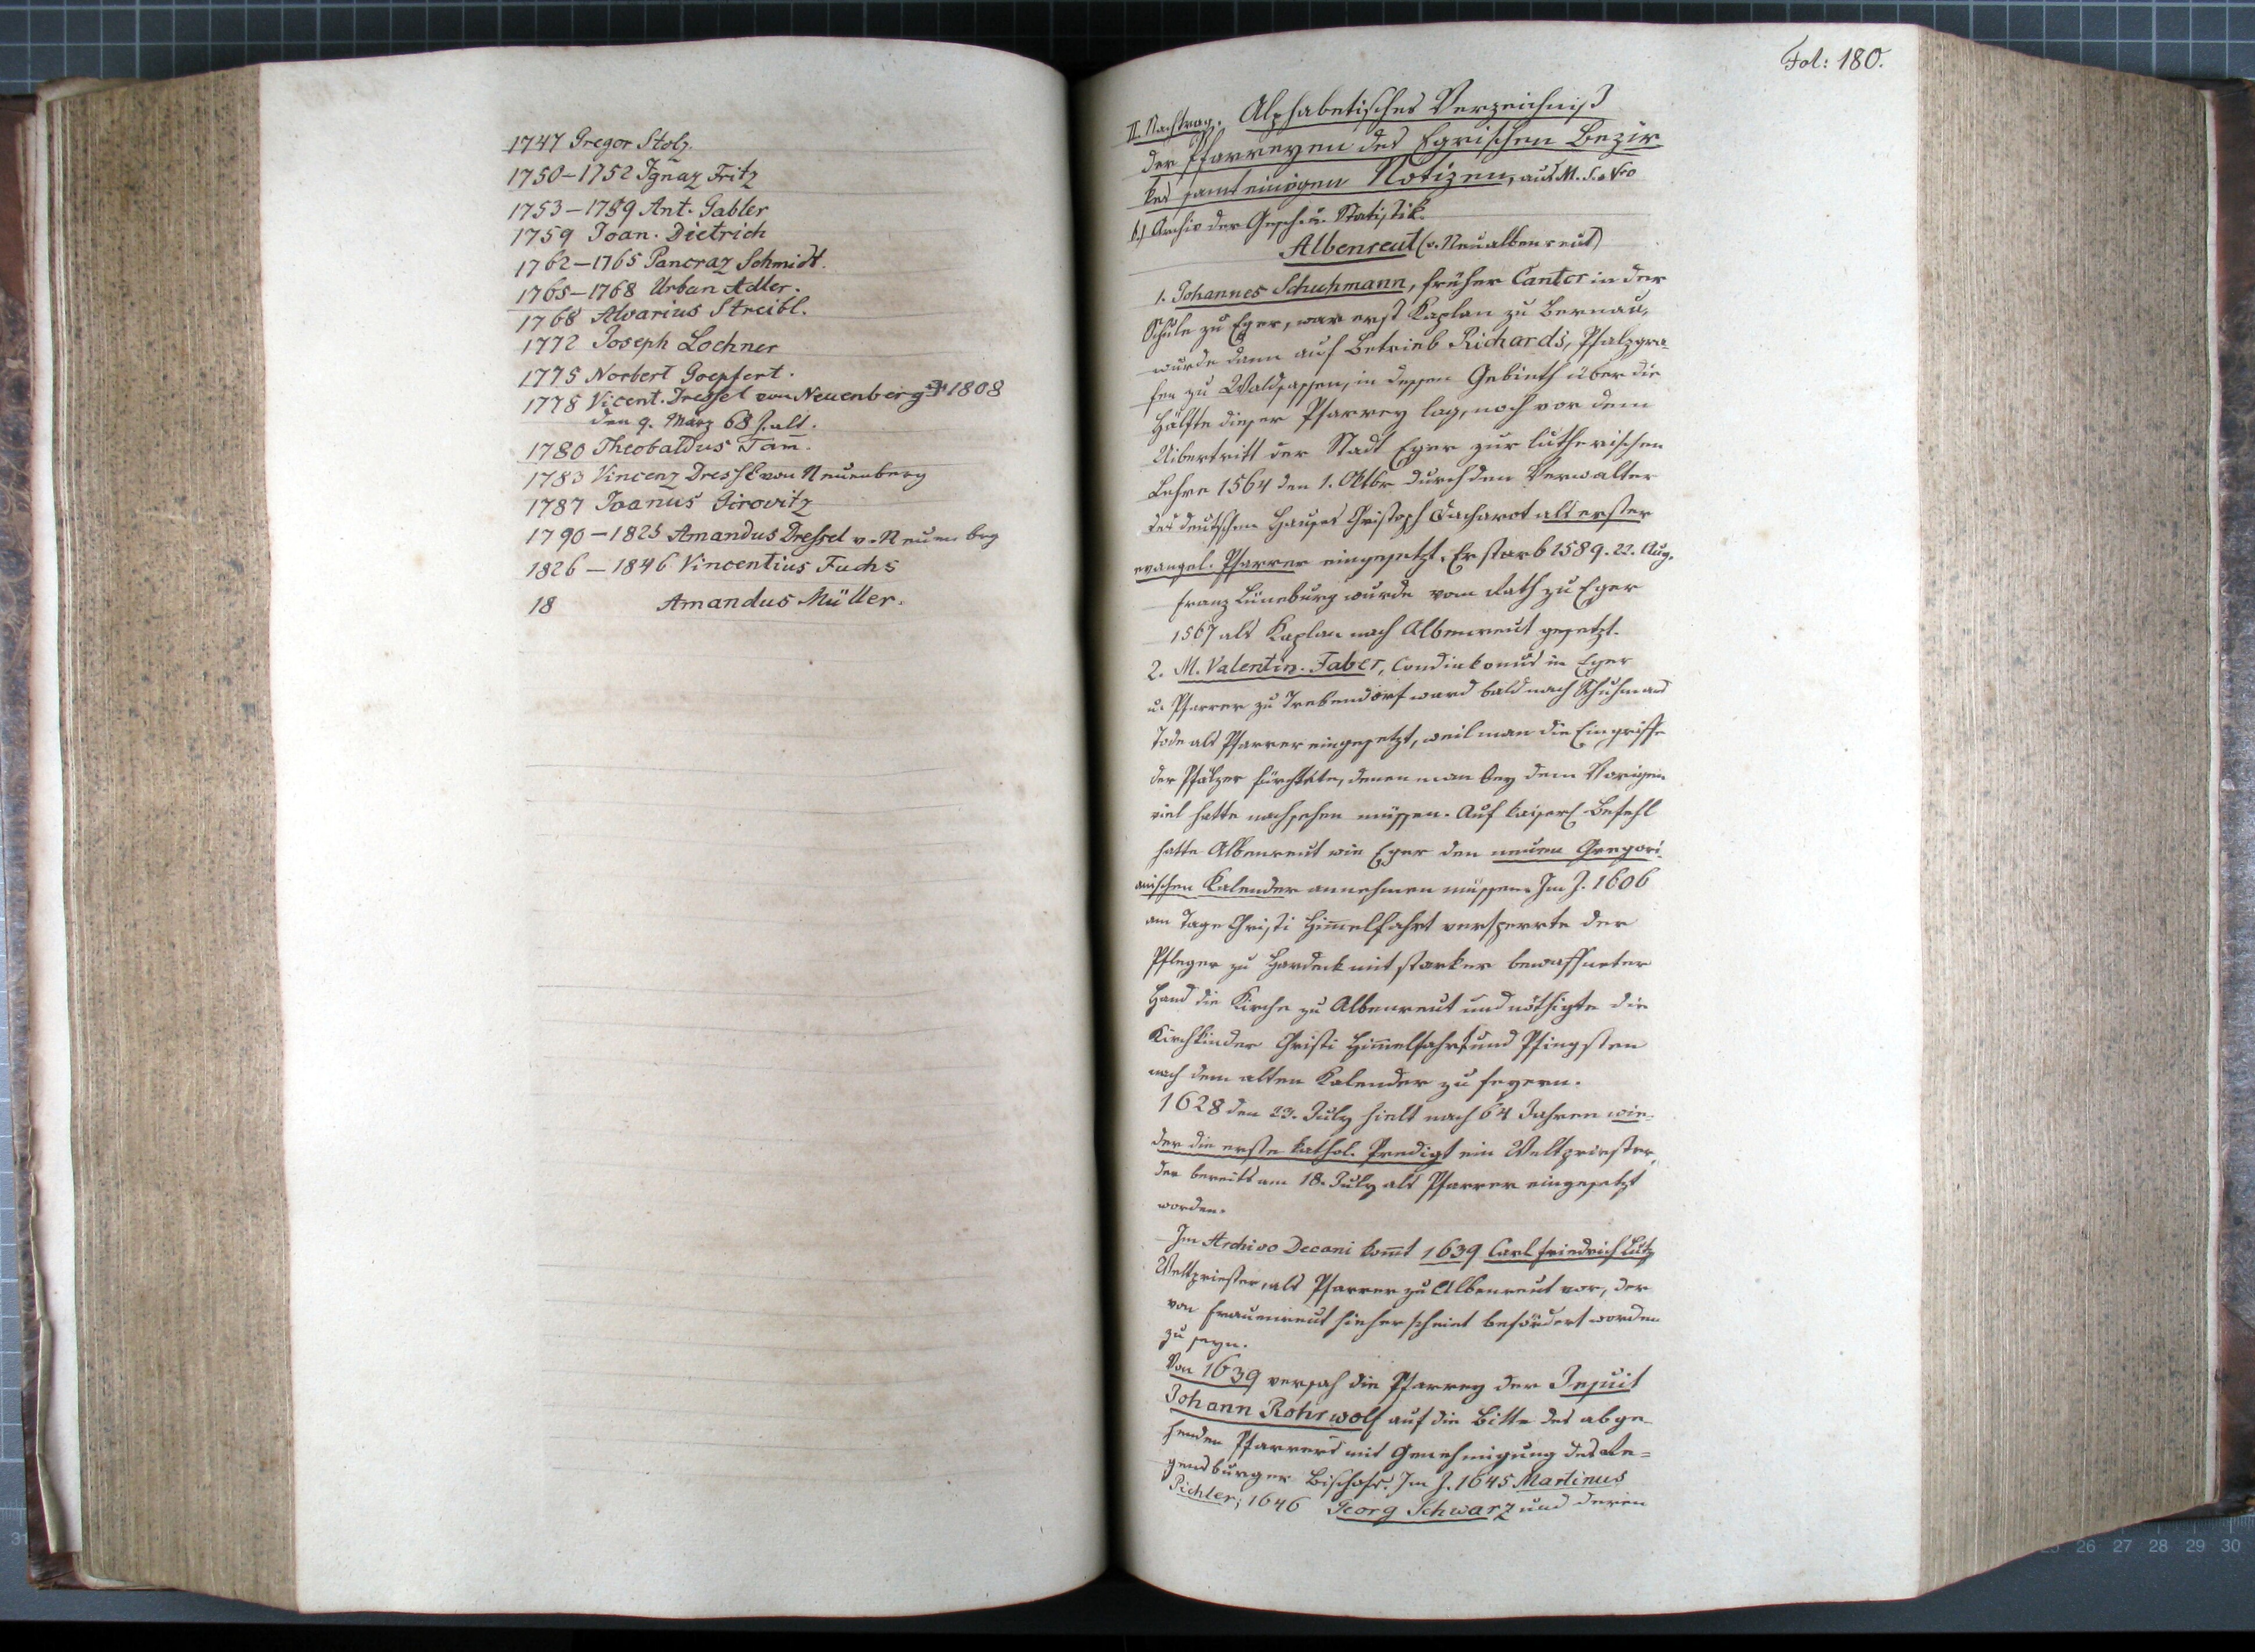 1747 Gregor Stolz.
1750–1752 Ignaz Fritz
1753–1759 Ant. Gabler
1759 Joan. Dietrich
1762–1765 Pancraz Schmidt.
1765–1768 Urban Adler.
1768 Alvarius Streibl.
1772 Joseph Lochner
1775 Norbert Goepfert.
1778 Vicent. Dressel von Neuenberg 1808
den 9. März 68 J. alt.
1780 Theobaldus Tam̄.
1783 Vincenz Dressl von Neuenberg
1787 Joanus Girovitz
1790–1825 Amandus Dressel v. Neuenbrg
1826–1846 Vincentius Fuchs
18 Amandus Müller.
Fol: 180.
II. Nachtrag. Alphabetisches Verzeichniß
der Pfarreyen des Egrischen Bezir-
kes samt einigen Notizen, aus M. S. Nro
Archiv der Gesch. u. Statistik.
Albenreut (v. Neualbenreut)
1. Johannes Schuhmann, früher Cantor in der
Schule zu Eger, war erst Kaplan zu Bernau,
wurde dann auf Betrieb Richards, Pfalzgra-
fen zu Waldsassen, in dessen Gebieth über die
Hälfte dieser Pfarrey lag, noch vor dem
Uibertritt der Stadt Eger zur lutherischen
Lehre 1564 den 1. Oktbr durch den Verwalter
des deutschen Hauses Christoph als erster
evangel. Pfarrer eingesetzt. Er starb 1589. 22. Aug.
Franz Lüneburg wurde vom Rath zu Eger
1567 als Kaplan nach Albenreut gesetzt.
2. M. Valentin. Faber, Condiakonus in Eger
u. Pfarrer zu Trebendorf ward bald nach Schuhmans
Tode als Pfarrer eingesetzt, weil man die Eingriffe
der Pfälzer fürchtete, denen man bey dem Vorigen
viel hatte nachsehen müssen. Auf kaiserl. Befehl
hatte Albenreut wie Eger den neuen Gregori-
anischen Kalender annehmen müssen. Im J. 1606
am Tage Christi Him̄elfahrt versperrte der
Pfleger zu Hardeck mit starker bewaffneter
Hand die Kirche zu Albenreut und nöthigte die
Kirchkinder Christi Him̄elfahrt und Pfingsten
nach dem alten Kalender zu feyern.
1628 den 23. July hielt nach 64 Jahren wie-
der die erste kathol. Predigt ein Weltpriester,
der bereits am 18. July als Pfarrer eingesetzt
worden.
Im Archivo Decani kom̄t 1639 Carl Friedrich Lutz
Weltpriester, als Pfarrer zu Albenreut vor, der
von Frauenreut hieher scheint befördert worden
zu seyn.
Von 1639 versah die Pfarrey der Jesuit
Johann Rohrwolf auf die Bitte des abge-
henden Pfarrers mit Genehmigung des Re=
gensburger Bischofs. Im J. 1645 Martinus
Pichler; 1646 Georg Schwarz und deren